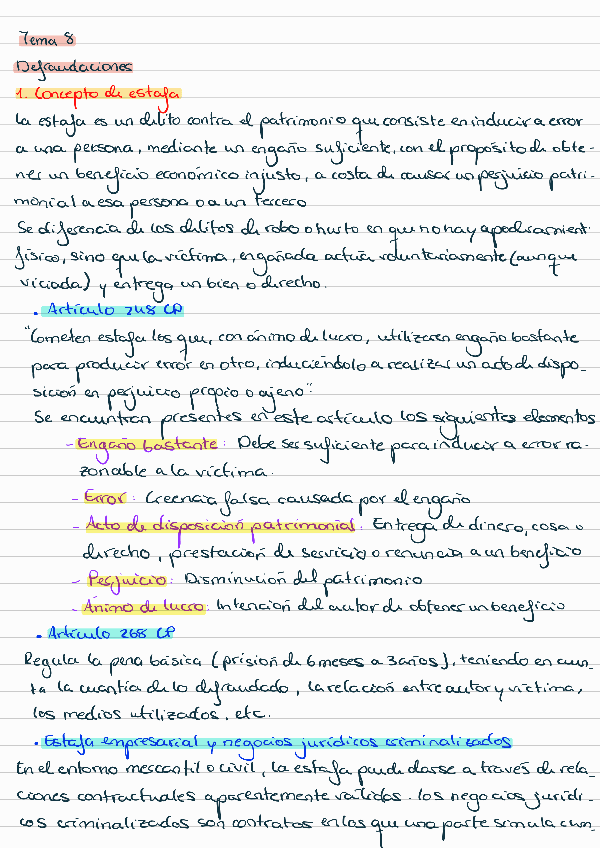 Tema 8
Defraudaciones
1. Concepto de estafa
La estafa es un delito contra el patrimonio que consiste en inducir a error
a una persona, mediante un engaño suficiente, con el propósito de obte-
ner un beneficio económico injusto, a costa de causar un perjuicio patri-
monial a esa persona o a un tercero
Se diferencia de los delitos de robo o hurto en que no hay apoderamient
físico, sino que la víctima, engañada actúa voluntariamente (aunque
viciada) y entrega un bien o derecho.
• Artículo 248 CP
"Cometen estafa los que, con ánimo de lucro, utilizaren engaño bastante
para producir error en otro, induciéndolo a realizar un acto de dispo-
sición en perjuicio propio o ajeno".
Se encuentran presentes en este artículo los siguientes elementos
- Engaño bastante: Debe ser suficiente para inducir a error ra-
zonable a la víctima.
- Error: Creencia falsa causada por el engaño
- Acto de disposición patrimonial: Entrega de dinero, cosa o
derecho, prestación de servicio o renuncia a un beneficio
- Perjuicio: Disminución del patrimonio
- Ánimo de lucro: Intención del autor de obtener un beneficio
• Artículo 268 CP
Regula la pena básica (prisión de 6 meses a 3 años), teniendo en cuen-
ta la cuantía de lo defraudado, la relación entre autor y víctima,
los medios utilizados, etc.
• Estafa empresarial y negocios jurídicos criminalizados
En el entorno mercantil o civil, la estafa puede darse a través de rela-
ciones contractuales aparentemente válidos. Los negocios jurídi-
cos criminalizados son contratos en los que una parte simula cum-